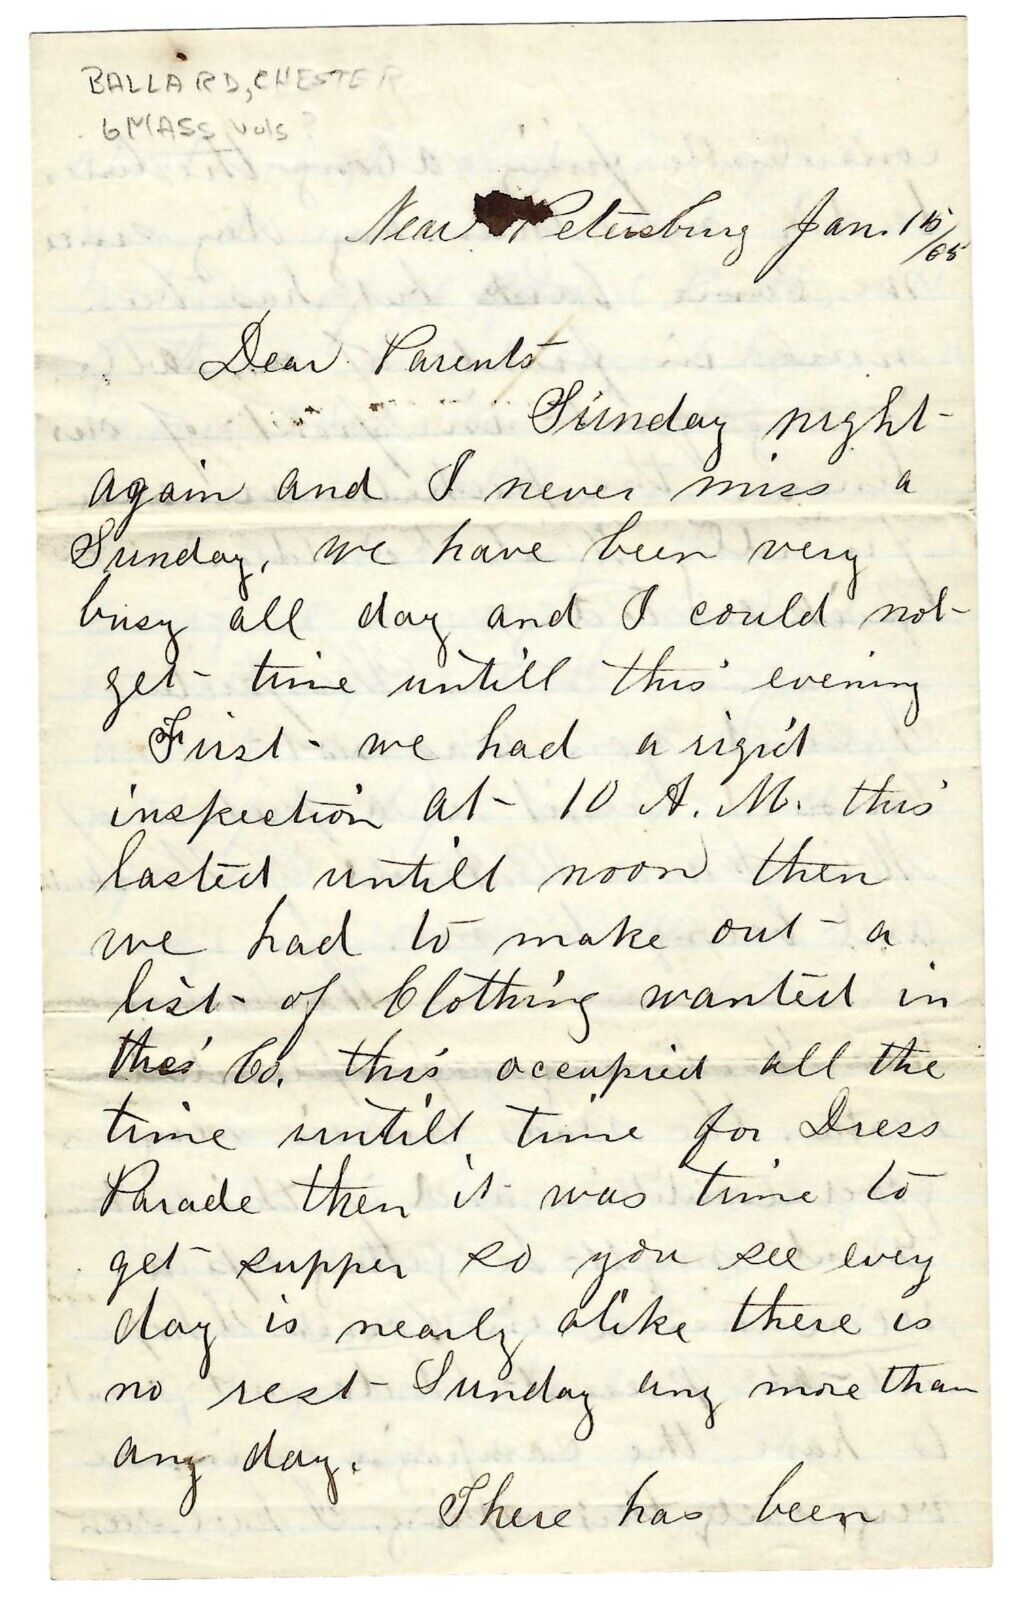 BALLARD, CHESTER
6 MASS Vols
Near Petersburg Jan. 15
/65
Dear Parents
Sunday night
again and I never miss a
Sunday, we have been very
busy all day and I could not
get time untill this evening
First we had a rigid
inspection at 10 A.M. this
lasted untill noon then
we had to make out a
list of Clothing wanted in
the Co. this occupied all the
time untill time for Dress
Parade then it was time to
get supper so you see every
day is nearly alike there is
no rest Sunday any more than
any day.
There has been